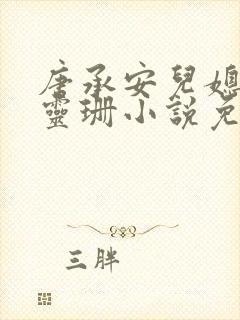 唐承安兒媳
靈珊小說免
三胖